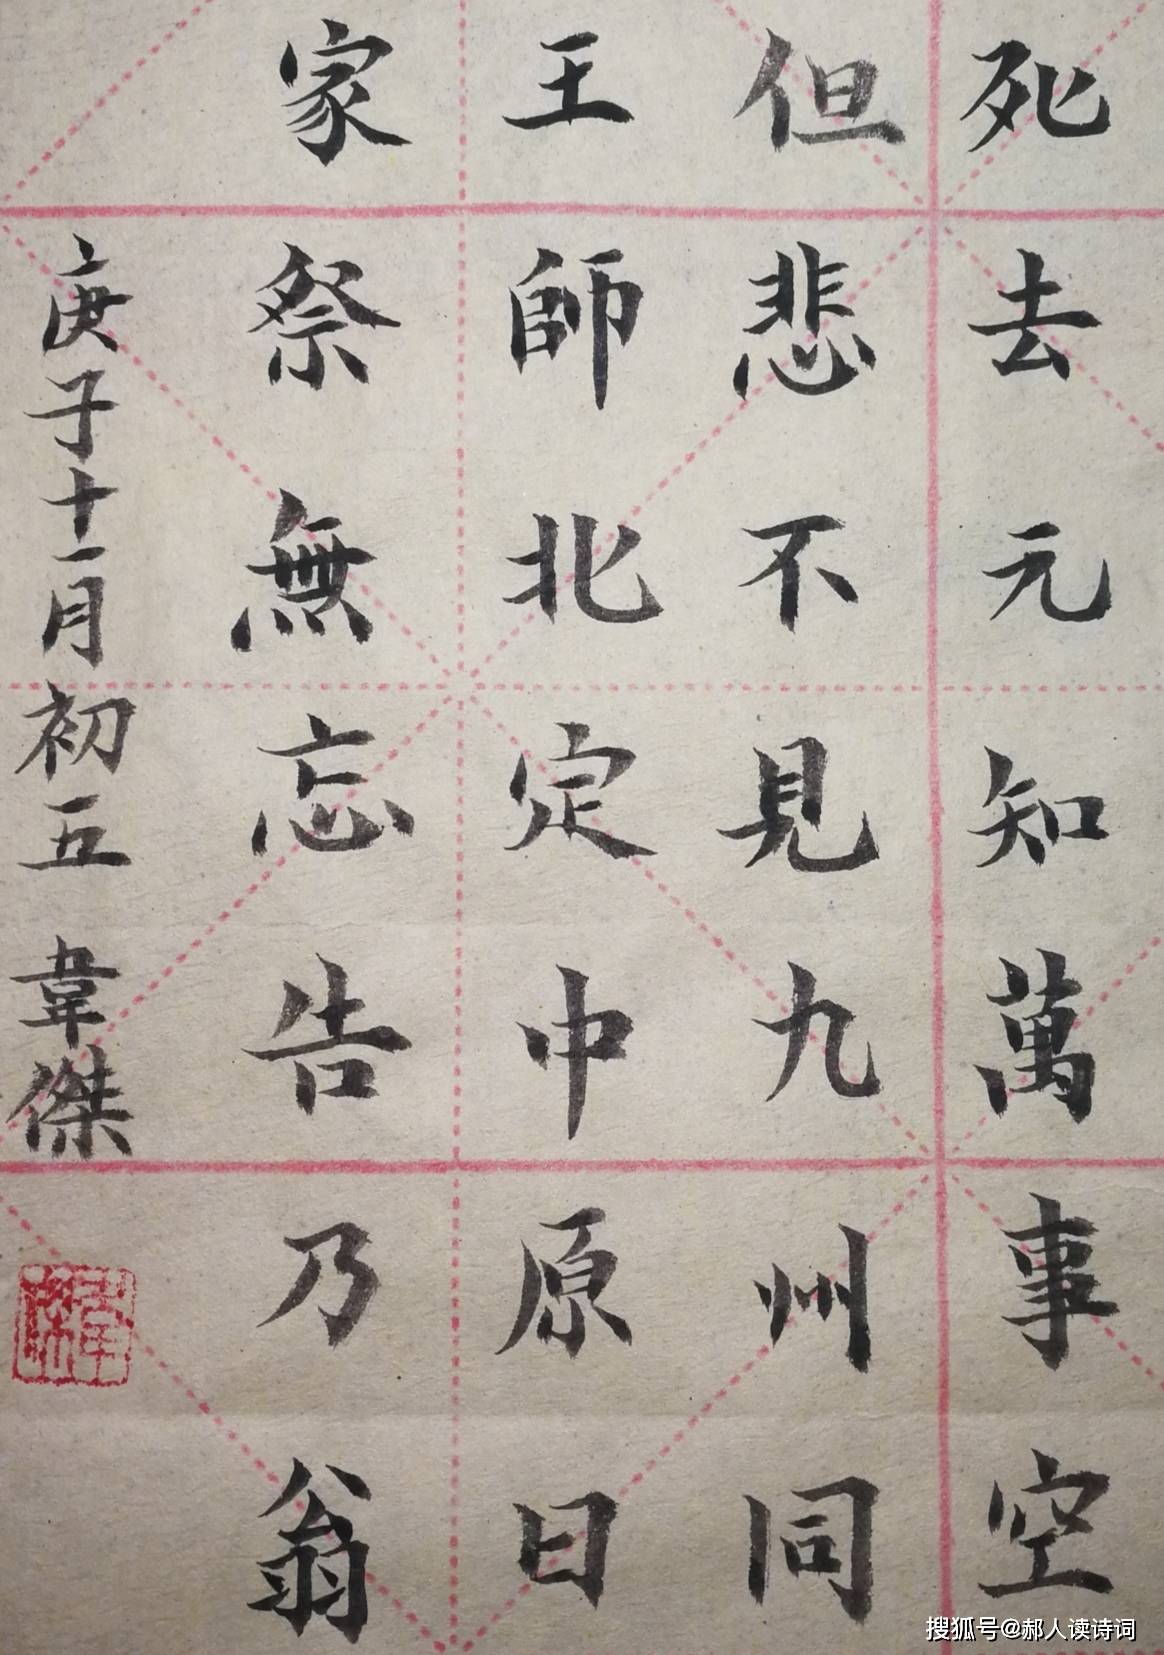 死去元知萬事空
但悲不見九州同
王師北定中原日
家祭無忘告乃翁
庚子十一月初五 韋傑
韋傑
搜狐号@郝人读诗词